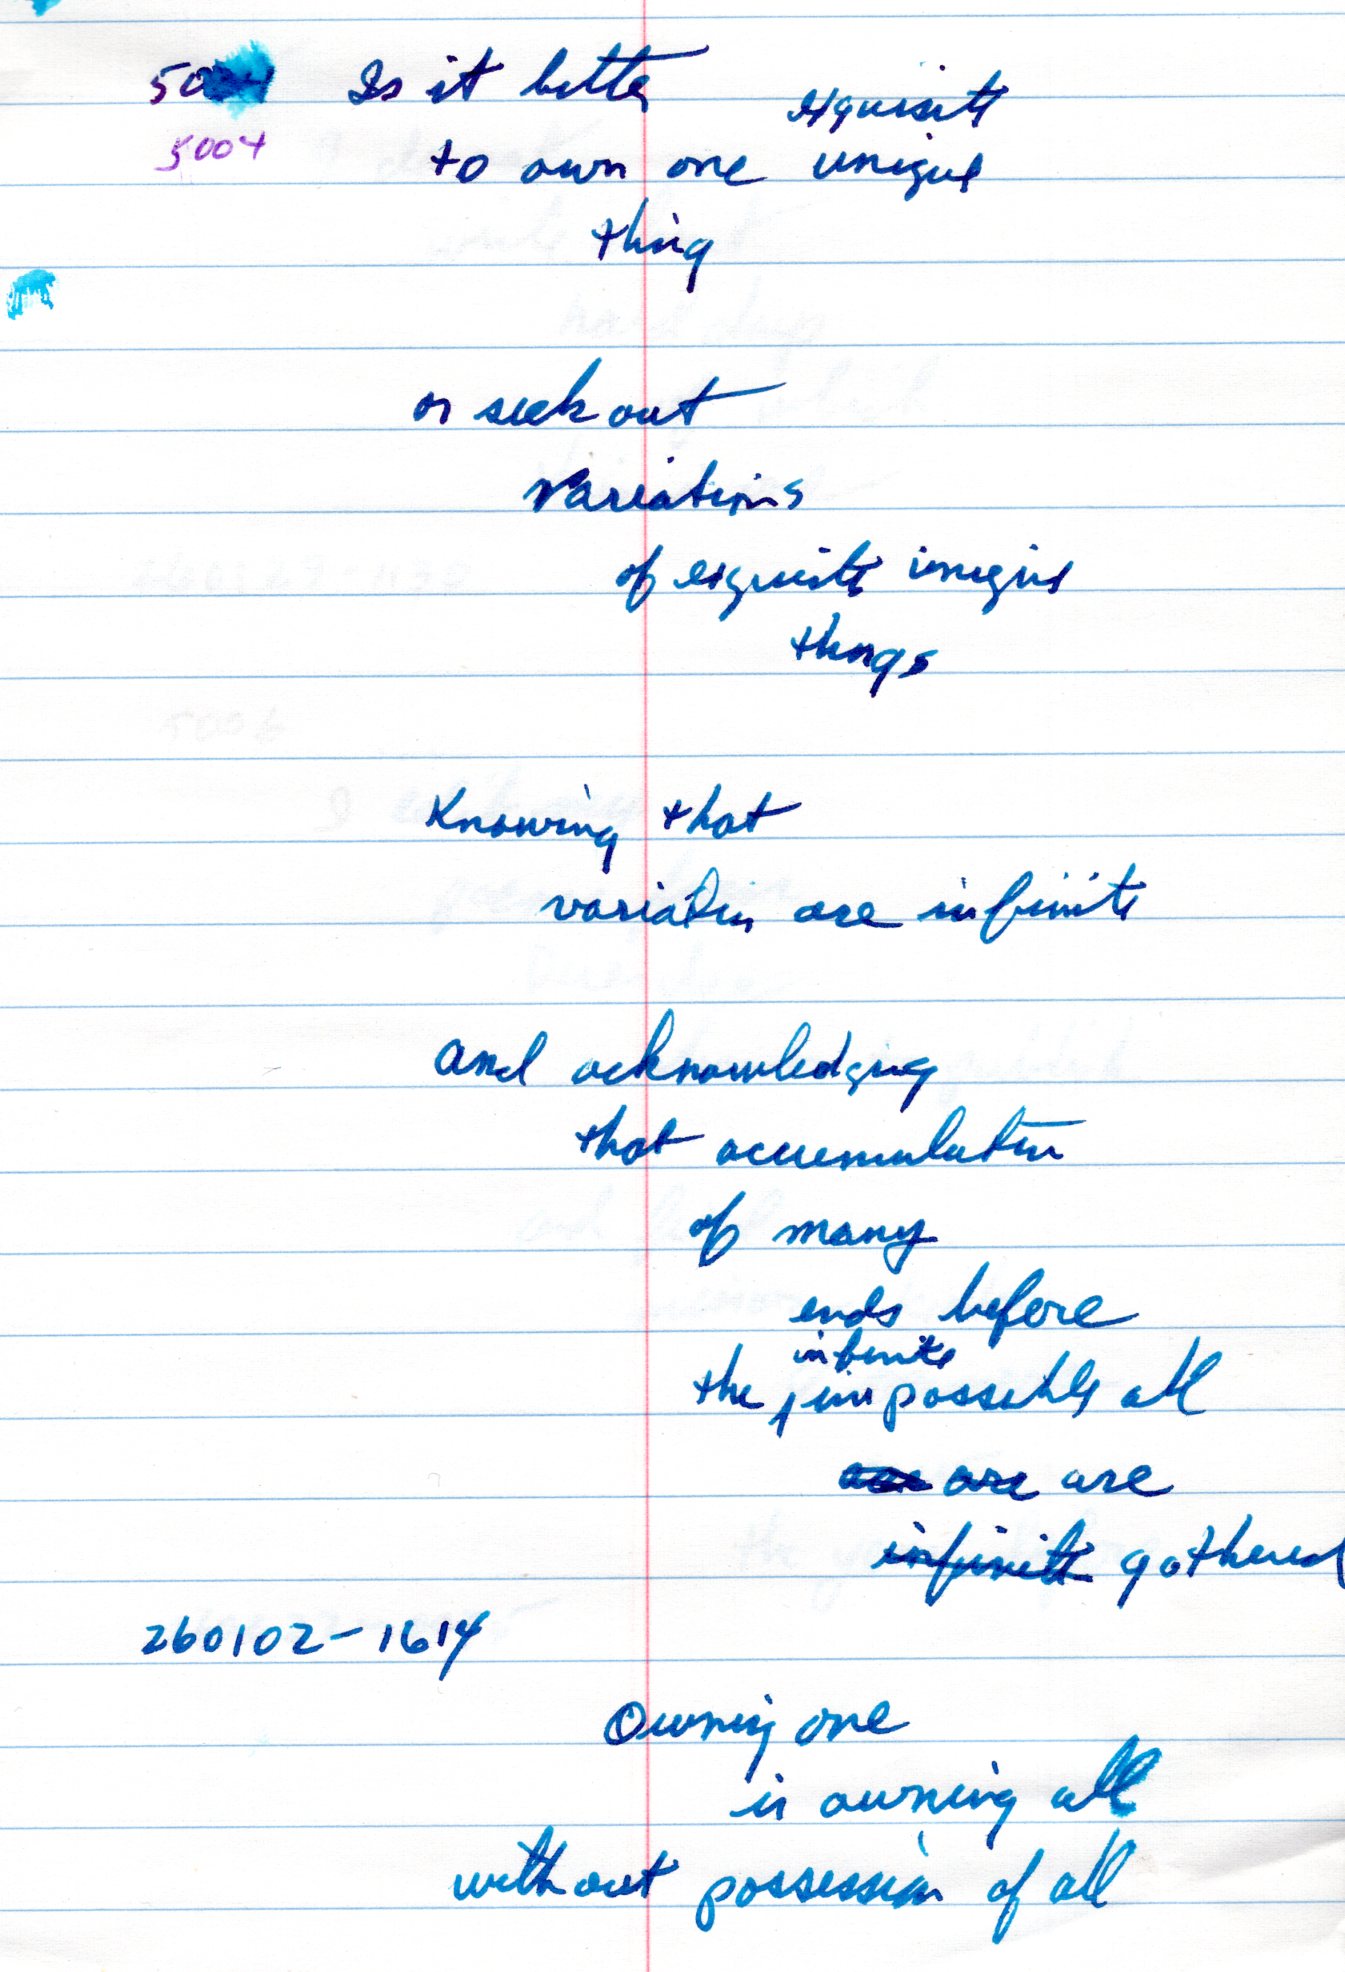 5004 Is it better
exquisite
5004 to own one unique
thing
or seek out
variations
of exquisite unique
things
Knowing that
variation are infinite
and acknowledging
that accumulation
of many
ends before
infinite
the impossible all
are are
infinite gathered
260102-1614
Owning one
is owning all
without possession of all